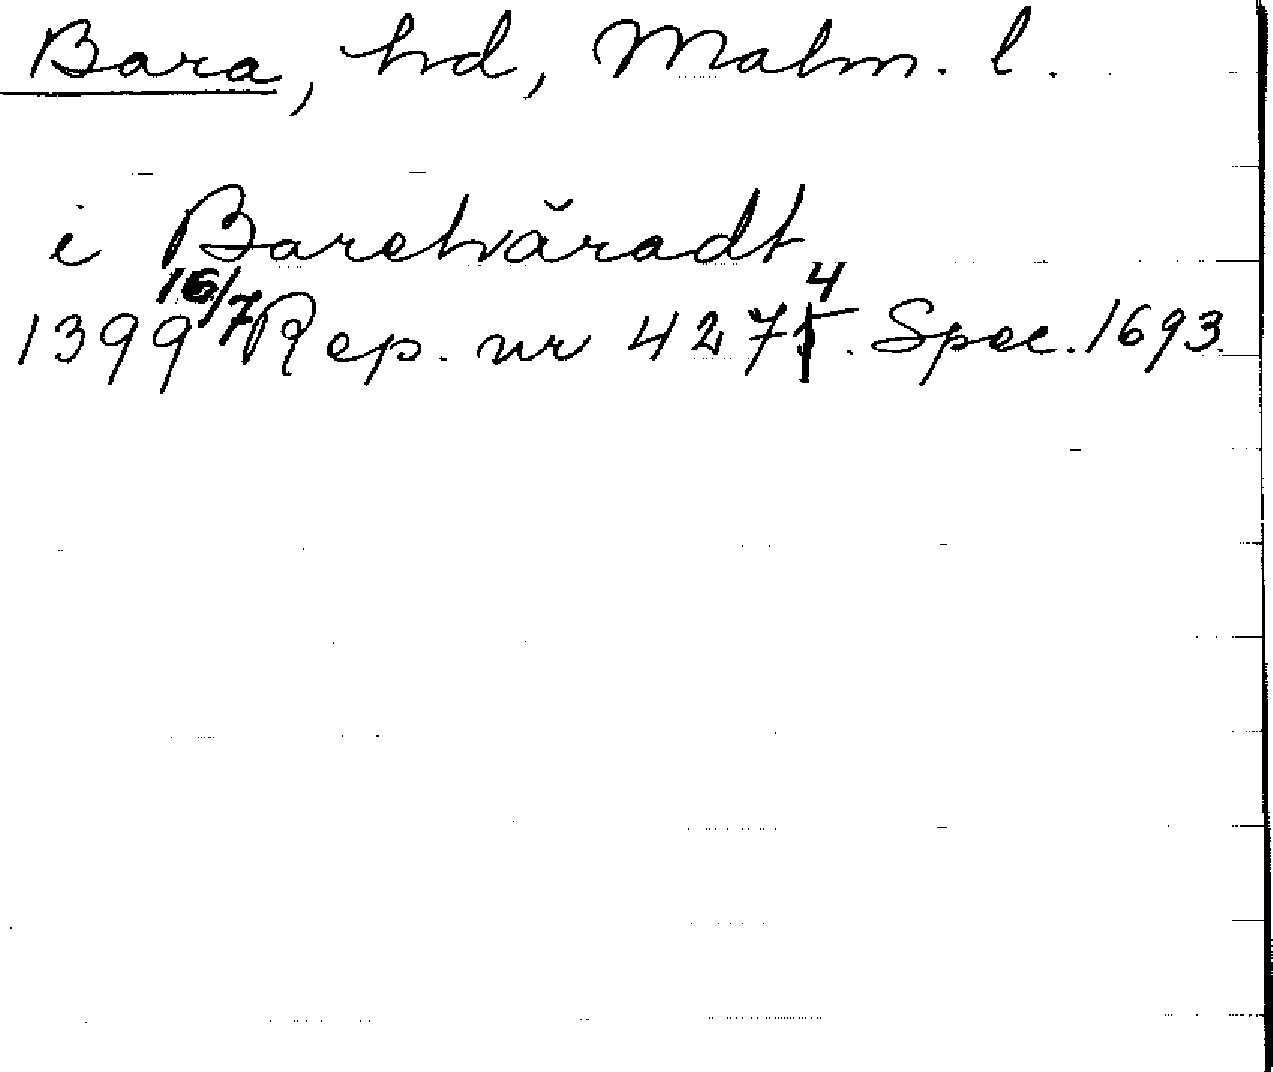 Bara, hd, Malm. l.
i Barehäradt
1399 16/7 Rep. nr 4274. Spec. 1693